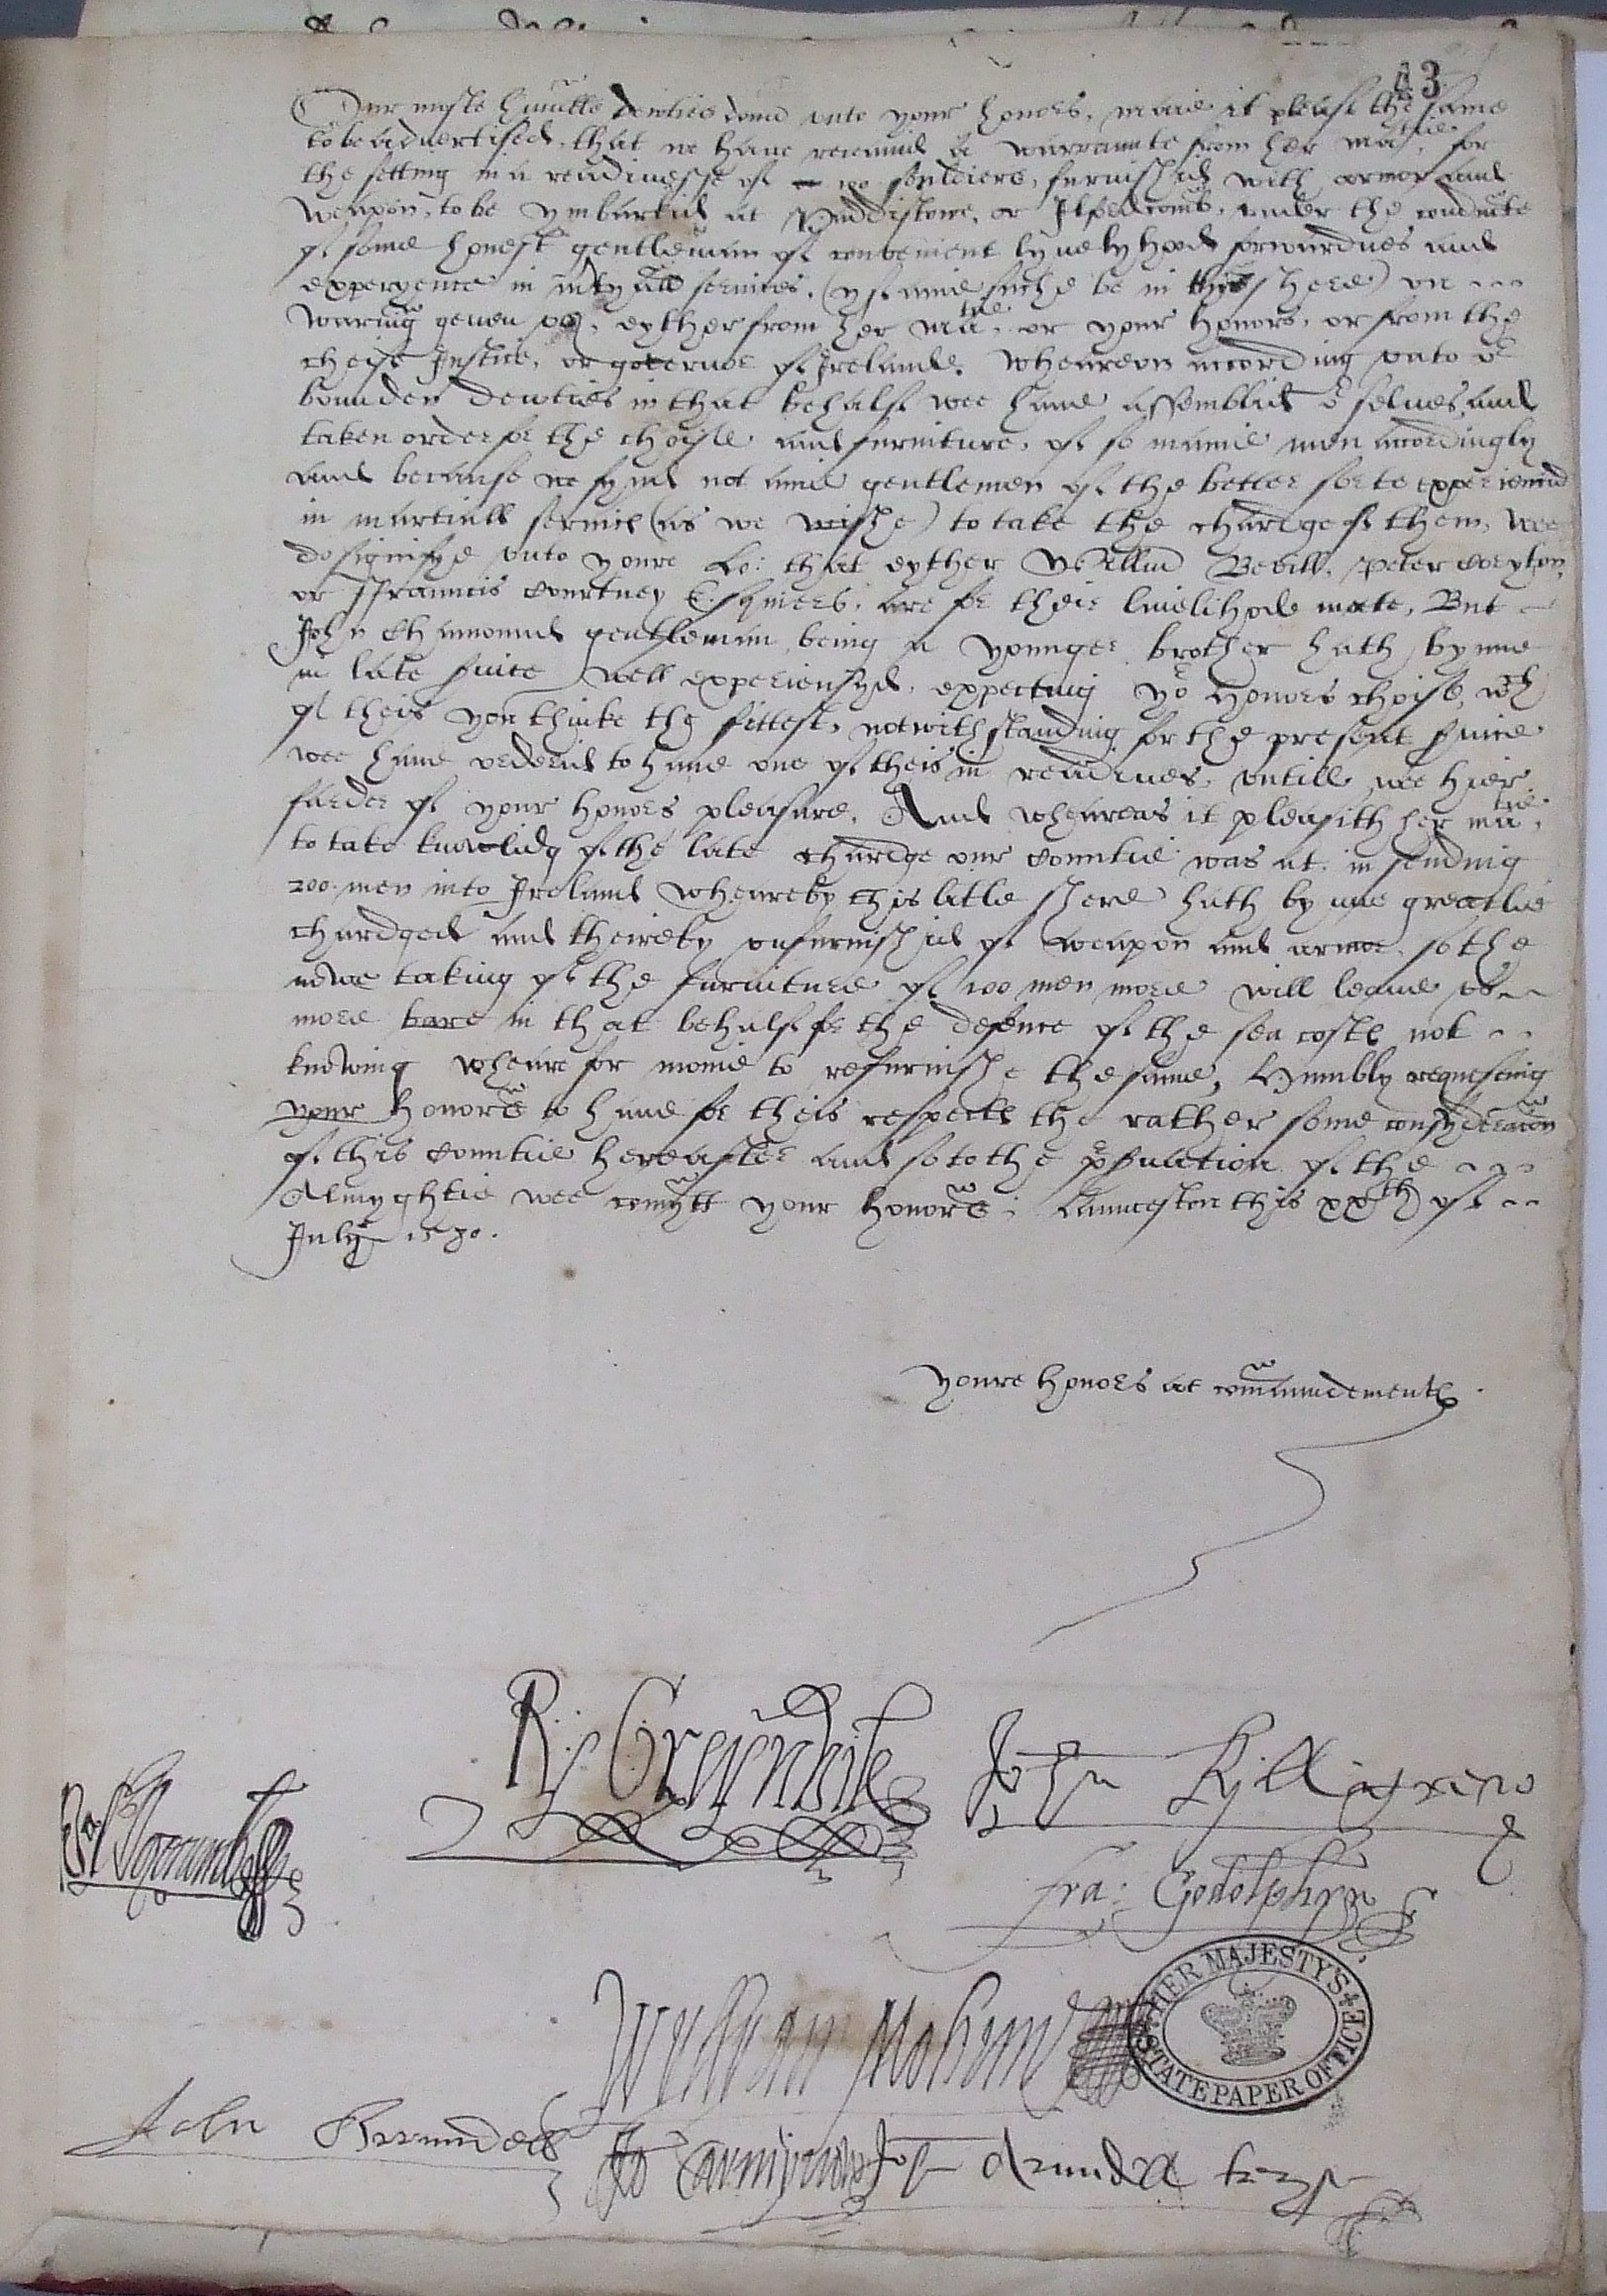 13
Our moste humble dewties done unto your honors, maie it please the same
to be advertised, that we have receaved a warraunte from her Matie, for
the setting in a readinesse of 100 souldiers, furnished with armor and
weapon, to be ymbarkid at or Ilferdcomb, under the conducte
of some honest gentleman of convenient lyvelyhood forwardnes and
experyence in service, (yf anie suche be in this shere) on
waring geven us, eyther from her Matie, or your honors, or from the
cheife Justice, or governor of Irelande. Wheareon according unto or
bounden dewties in that behalf wee have assemblid or selves, and
taken order for the choyse and furniture, of so manie men accordingly
and because we fynd not anie gentlemen of the better sorte experiencid
in martiall service (as we wishe) to take the chardge of them, wee
do signifye unto youre Lo: that eyther Willm Bevill, Peter Coryton,
or Frauncis Courtney Esquiers, are for their livelihode meete, But
John Chamond gentleman being a younger brother hath byne
in late service well experiensyd, expecting yor honors choise, wch
of theis you thinke the fittest, notwithstanding for the present service
wee have orderid to have one of theis in readines, untill wee hier
farder of your honors pleasure. And wheareas it pleasith her Matie,
to take knowlidg of the late chardge our Countie was at in sending
200 men into Ireland wheareby this litle shere hath byne greatlie
chardged and theireby unfurnishid of weapon and armor, so the
newe taking of the furniture of 100 men more will leave us
more bare in that behalf for the defence of the sea coste not
knowing wheare for monie to refurnishe the same, Humbly requesting
your honors to have for theis respects the rather some consyderacon
of this Countie hereafter and so to the pservation of the
Almyghtie wee comytt your honors; Launceston this xxth of
July 1570.
Youre honors at commaundement
R Greynvile John Kylligrew
Fra: Godolphyn
Wyllyam Mohun
HER MAJESTY'S STATE PAPER OFFICE
John Arundell Jo Carmynow Jo Arundell trerys